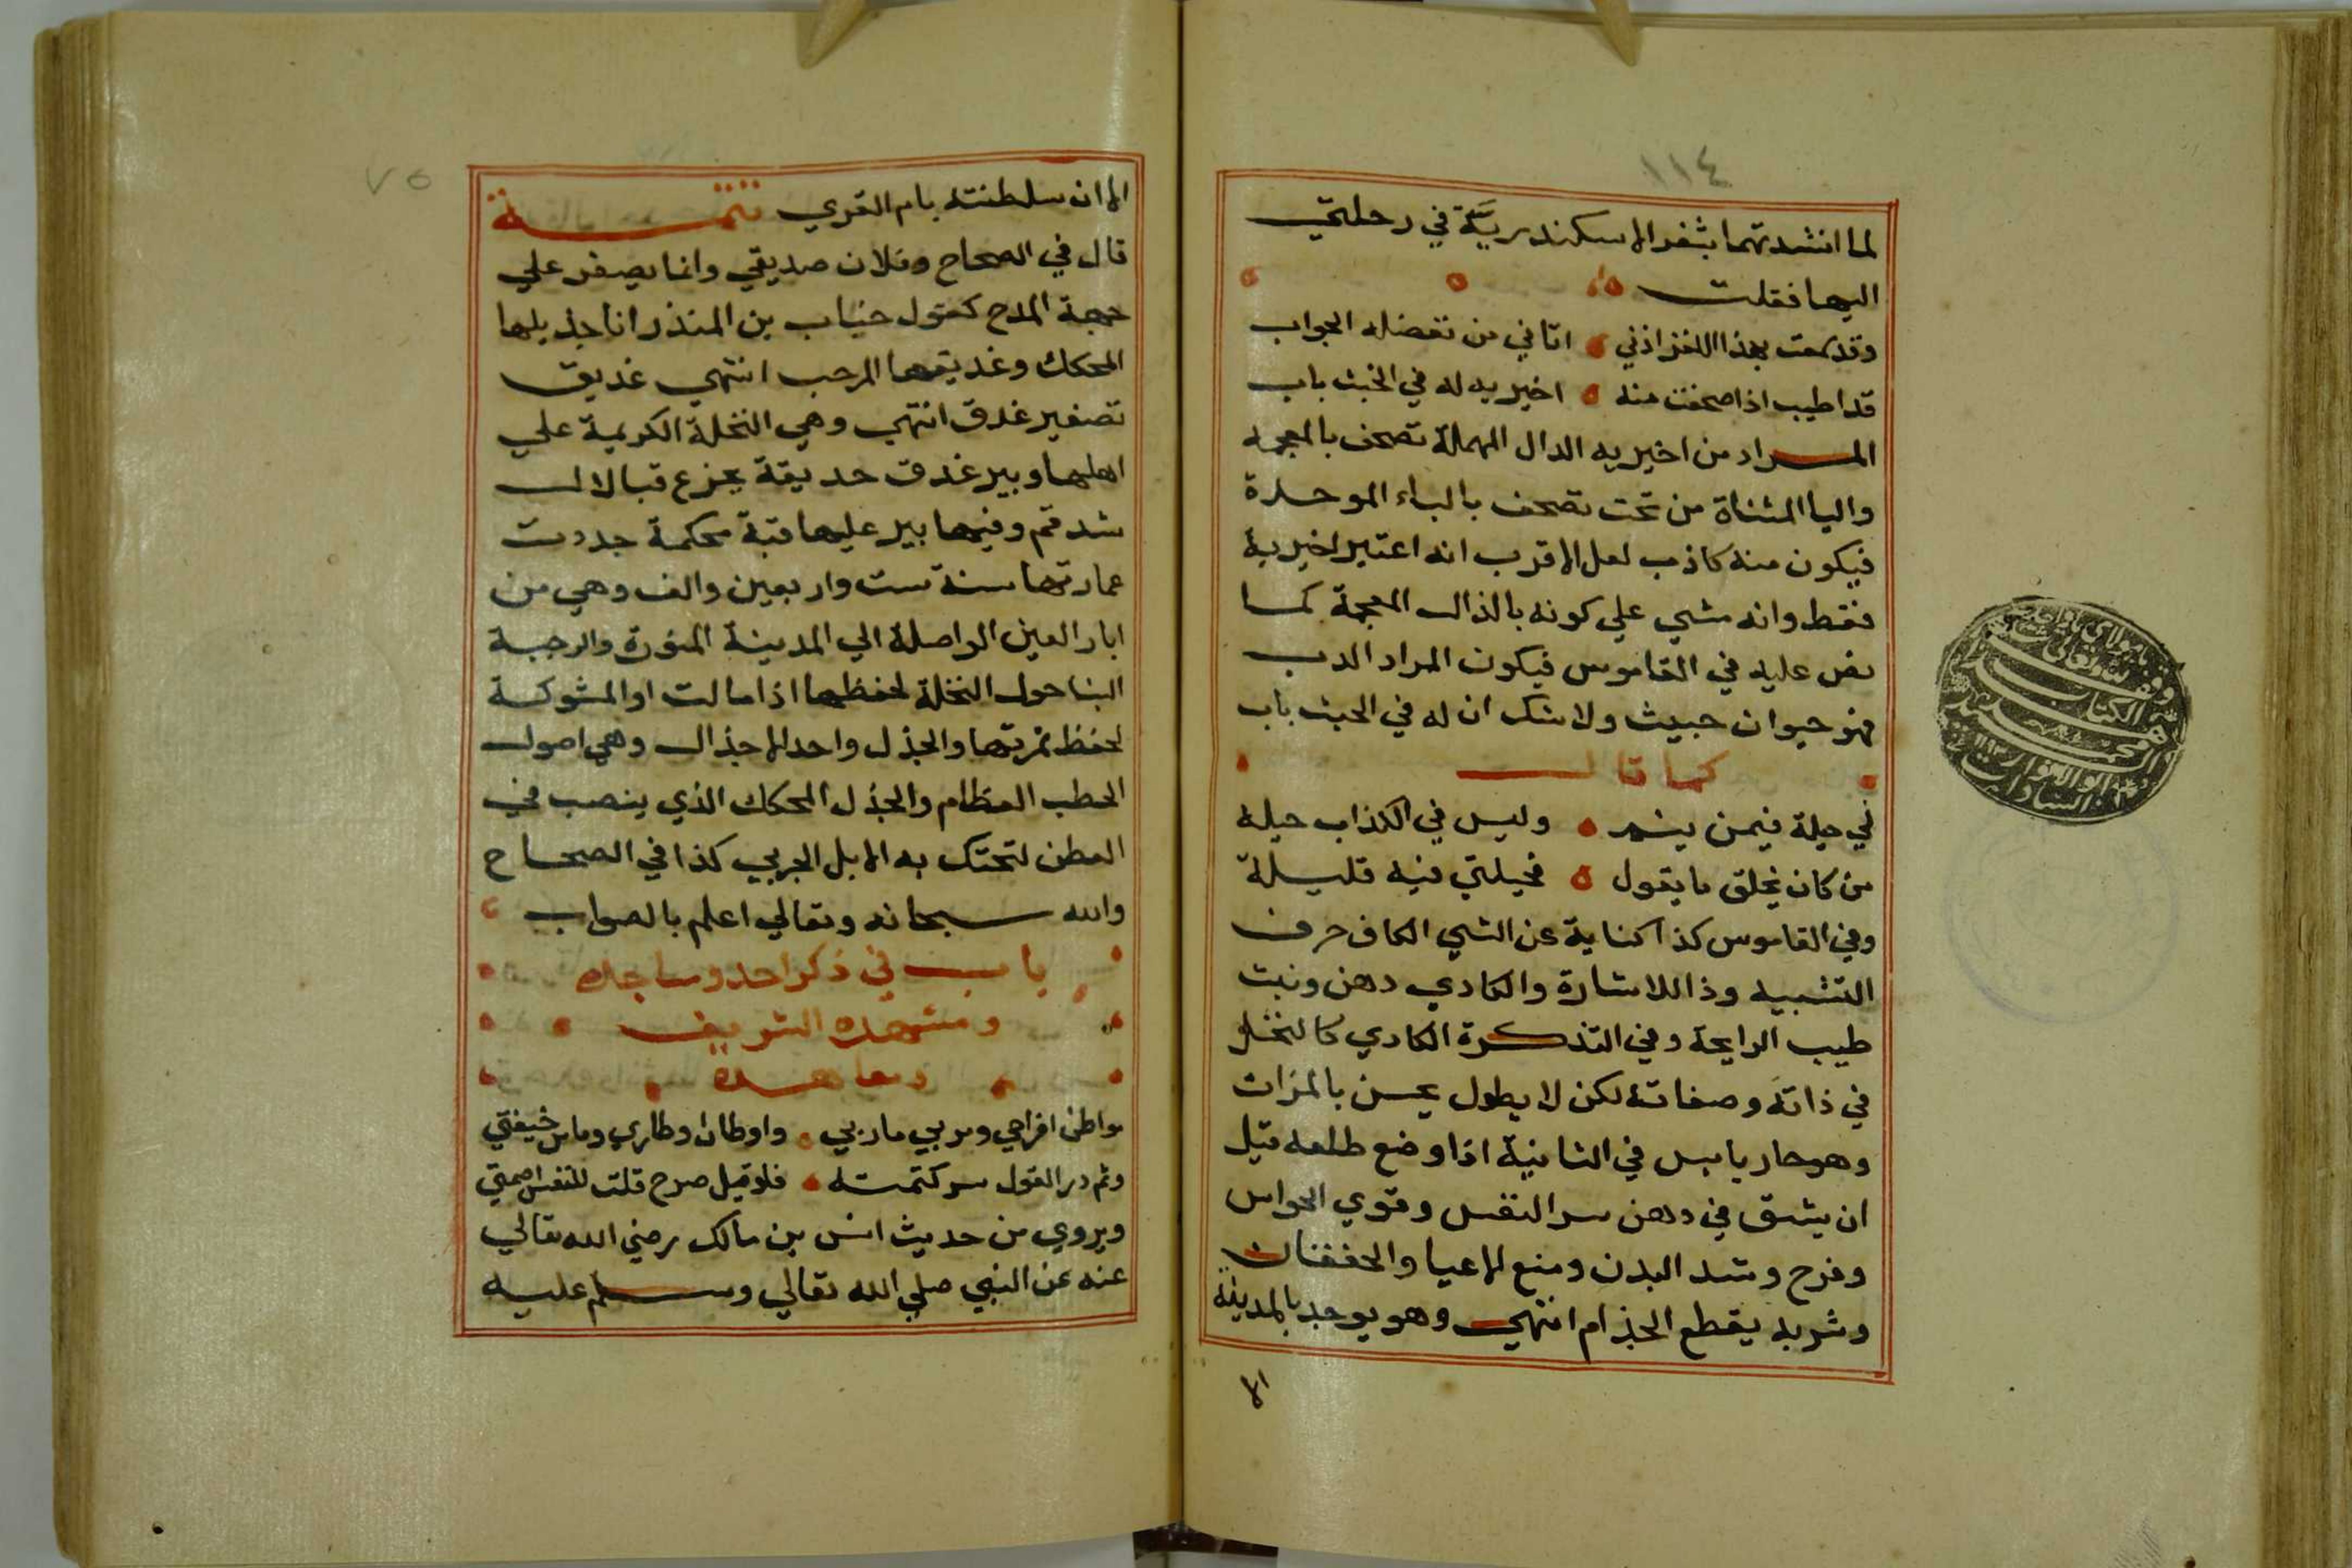 ١١٤
لما انشدتهما بثغر الاسكندريّة في رحلتي
اليها فقلت
وقد سمعت بهذا اللغز اذني اتاني من تفضله الجواب
قد اطيب اذا صحفت منه اخيريه له في الخبث باب
المراد من اخيريه الدال المهملة تصحف بالمعجمه
واليا المثناة من تحت تصحف بالباء الموحدة
فيكون منه كاذب لعل الاقرب انه اعتبر اخيريه
فقط وانه مشي علي كونه بالذال المعجمة كما
نص عليه في القاموس فيكون المراد الدب
فهو حيوان خبيث ولا شك ان له في الخبث باب
كما قال
لي حيلة فيمن ينم وليس في الكذاب حيله
من كان يخلق ما يقول فحيلتي فيه قليلة
وفي القاموس كذا كناية عن الشي الكاف حرف
التشبيه وذا للاشارة والكادي دهن ونبت
طيب الرايحة وفي التذكرة الكادي كالنخل
في ذاته وصفاته لكن لا يطول يحسن بالمزاث
وهو حار يابس في الثانية اذا وضع طلعه قبل
ان يشق في دهن سر النفس وقوي الحواس
وفرح وشد البدن ومنع الاعيا والخفقان
وشربه يقطع الجذام انتهي وهو يوجد بالمدينة
الا
٧٥
الا ان سلطنته بام القري تتمة
قال في الصحاح وفلان صديقي وانما يصغر علي
جهة المدح كقول حباب بن المنذر انا جذيلها
المحكك وغديقها المرجب انتهي غديق
تصغير غدق انتهي وهي النخلة الكريمة علي
اهلها وبير غدق حديقة بجزع قبالا لـ
شدقم وفيها بير عليها قبة محكمة جددت
عمارتها سنة ست واربعين والف وهي من
ابار العين الواصلة الي المدينة المنورة والرجبة
البنا حول النخلة لحفظها اذا مالت او المشوكة
لحفظ ثمرتها والجذل واحد الاجذال وهي اصول
الحطب العظام والجذل المحكك الذي ينصب في
العطن لتحتك به الابل الجربي كذا في الصحاح
والله سبحانه وتعالي اعلم بالصواب
باب في ذكر احد ومساجده
ومشهده الشريف
ومعاهده
مواطن افراحي ومربي ماربي واوطان اوطاري وما من خيفتي
وثم در القول سر كتمته فلو قيل صرح قلت للنفس اصمتي
ويروي من حديث انس بن مالك رضي الله تعالي
عنه عن النبي صلي الله تعالي وسلم عليه